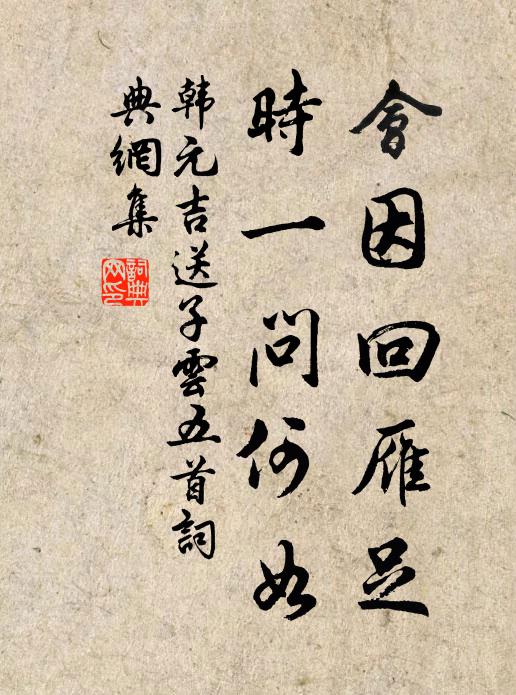 會因回雁足
時一問何如
韩元吉送子雲五首詞
典網集
詞典网印